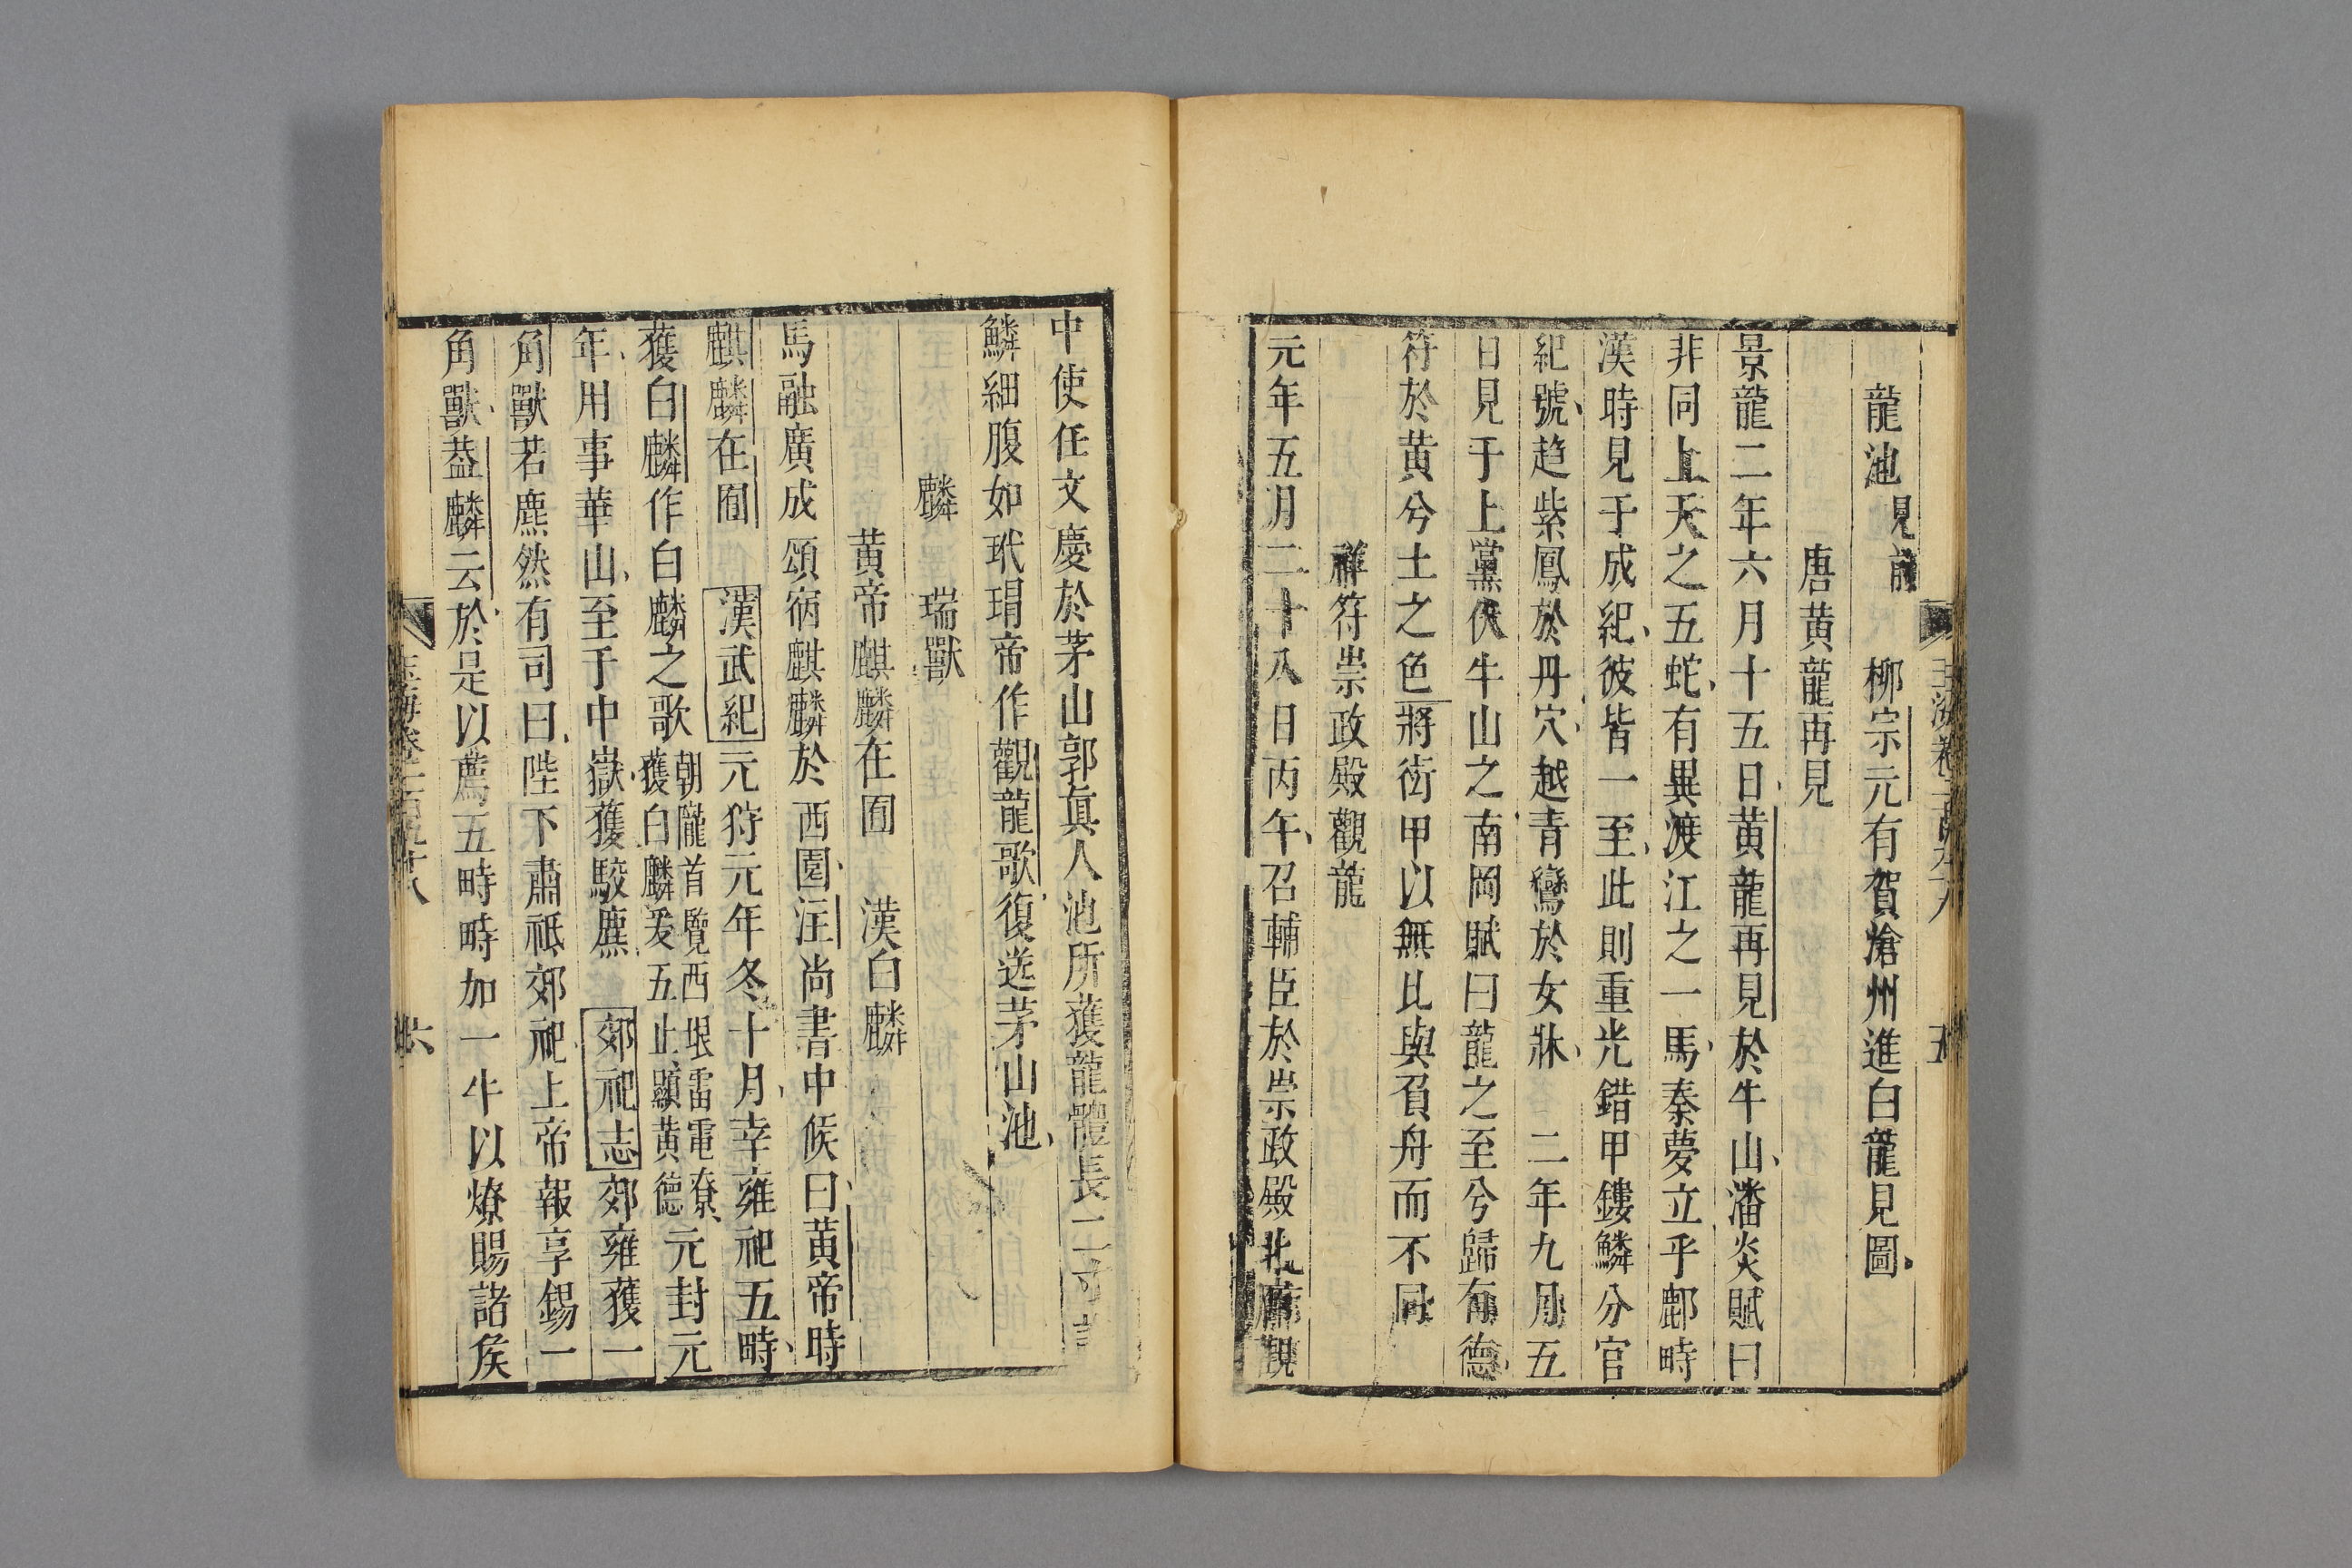 龍池見前 柳宗元有賀滄州進白龍見圖
唐黄龍再見
景龍二年六月十五日黄龍再見於牛山潘炎賦曰
非同上天之五蛇有異渡江之一馬秦夢立乎鄜畤
漢時見于成紀彼皆一至此則重光錯甲鏤鱗分官
紀號趋紫鳳於丹穴越青鸞於女牀 二年九月五
日見于上黨伏牛山之南岡賦曰龍之至兮歸有德
符於黄兮土之色將銜甲以無比與負舟而不同
祥符崇政殿觀龍
元年五月二十八日丙午召輔臣於崇政殿北廡觀
中使任文慶於茅山郭眞人池所獲龍體長二寸
鱗細腹如玳瑁帝作觀龍歌復送茅山池
麟 瑞獸
黄帝麒麟在囿 漢白麟
馬融廣成頌宿麒麟於西園注尚書中候曰黄帝時
麒麟在囿 漢武紀元狩元年冬十月幸雍祀五畤
獲白麟作白麟之歌朝隴首覽西垠雷電尞獲白麟爰五止顯黄德元封元
年用事華山至于中嶽獲駮麃郊祀志郊雍獲一
角獸若麃然有司曰陛下肅祗郊祀上帝報享錫一
角獸葢麟云於是以薦五畤畤加一牛以燎賜諸矦
玉海卷一百九十八 六